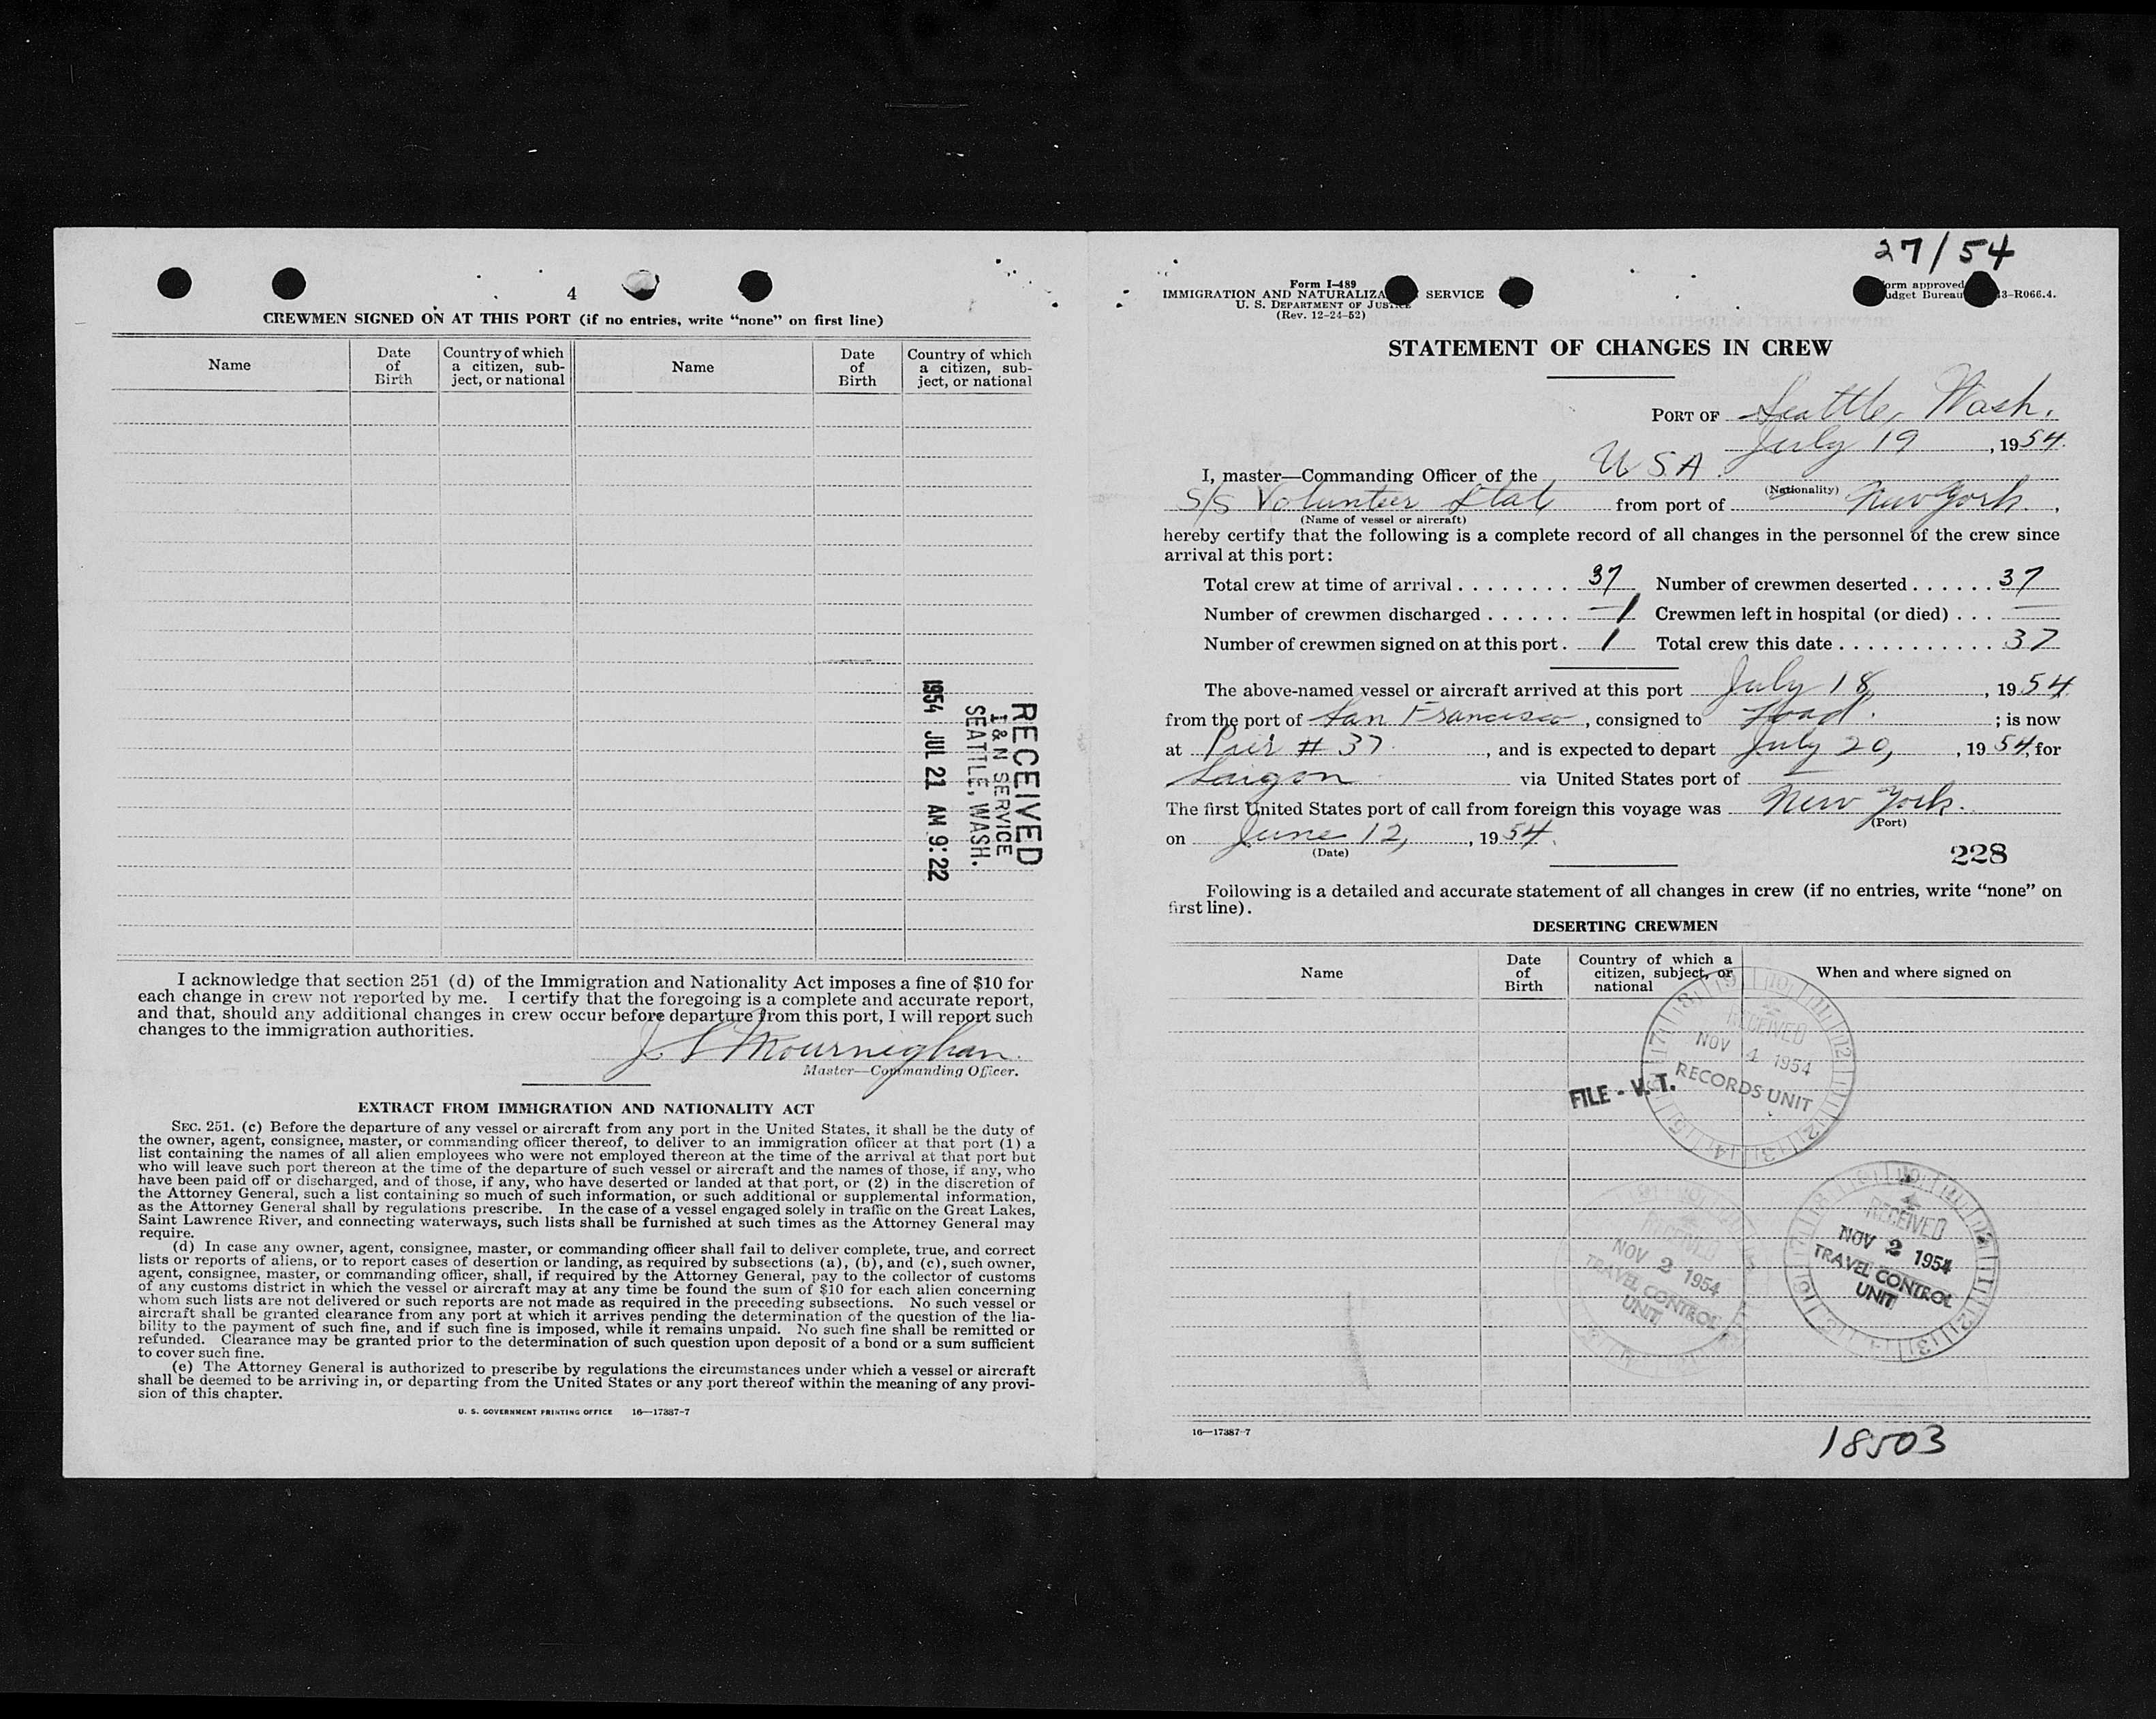 4
CREWMEN SIGNED ON AT THIS PORT (if no entries, write “none” on first line)
Name
Date of Birth
Country of which a citizen, sub-ject, or national
Name
Date of Birth
Country of which a citizen, sub-ject, or national
RECEIVED
I & N SERVICE
SEATTLE, WASH.
1954 JUL 21 AM 9:22
I acknowledge that section 251 (d) of the Immigration and Nationality Act imposes a fine of $10 for
each change in crew not reported by me. I certify that the foregoing is a complete and accurate report,
and that, should any additional changes in crew occur before departure from this port, I will report such
changes to the immigration authorities.
J. S. Mourneghan
Master—Commanding Officer.
EXTRACT FROM IMMIGRATION AND NATIONALITY ACT
SEC. 251. (c) Before the departure of any vessel or aircraft from any port in the United States, it shall be the duty of
the owner, agent, consignee, master, or commanding officer thereof, to deliver to an immigration officer at that port (1) a
list containing the names of all alien employees who were not employed thereon at the time of the arrival at that port but
who will leave such port thereon at the time of the departure of such vessel or aircraft and the names of those, if any, who
have been paid off or discharged, and of those, if any, who have deserted or landed at that port, or (2) in the discretion of
the Attorney General, such a list containing so much of such information, or such additional or supplemental information,
as the Attorney General shall by regulations prescribe. In the case of a vessel engaged solely in traffic on the Great Lakes,
Saint Lawrence River, and connecting waterways, such lists shall be furnished at such times as the Attorney General may
require.
(d) In case any owner, agent, consignee, master, or commanding officer shall fail to deliver complete, true, and correct
lists or reports of aliens, or to report cases of desertion or landing, as required by subsections (a), (b), and (c), such owner,
agent, consignee, master, or commanding officer, shall, if required by the Attorney General, pay to the collector of customs
of any customs district in which the vessel or aircraft may at any time be found the sum of $10 for each alien concerning
whom such lists are not delivered or such reports are not made as required in the preceding subsections. No such vessel or
aircraft shall be granted clearance from any port at which it arrives pending the determination of the question of the lia-
bility to the payment of such fine, and if such fine is imposed, while it remains unpaid. No such fine shall be remitted or
refunded. Clearance may be granted prior to the determination of such question upon deposit of a bond or a sum sufficient
to cover such fine.
(e) The Attorney General is authorized to prescribe by regulations the circumstances under which a vessel or aircraft
shall be deemed to be arriving in, or departing from the United States or any port thereof within the meaning of any provi-
sion of this chapter.
U. S. GOVERNMENT PRINTING OFFICE 16—17387-7
27/54
Form I-489
IMMIGRATION AND NATURALIZA SERVICE
U. S. DEPARTMENT OF JUSTICE
(Rev. 12-24-52)
orm approved
udget Bureau 3-R066.4.
STATEMENT OF CHANGES IN CREW
PORT OF Seattle, Wash.
July 19, 1954
I, master—Commanding Officer of the USA
(Nationality)
S/S Volunteer State from port of New York,
(Name of vessel or aircraft)
hereby certify that the following is a complete record of all changes in the personnel of the crew since
arrival at this port:
Total crew at time of arrival 37 Number of crewmen deserted 37
Number of crewmen discharged 1 Crewmen left in hospital (or died) —
Number of crewmen signed on at this port. 1 Total crew this date 37
The above-named vessel or aircraft arrived at this port July 18, 1954
from the port of San Francisco, consigned to ; is now
at Pier # 37, and is expected to depart July 20, 1954, for
Saigon via United States port of —
The first United States port of call from foreign this voyage was New York.
(Port)
on June 12, 1954.
(Date)
228
Following is a detailed and accurate statement of all changes in crew (if no entries, write “none” on
first line).
DESERTING CREWMEN
Name
Date of Birth
Country of which a citizen, subject, or national
When and where signed on
RECEIVED
NOV 4 1954
RECORDS UNIT
FILE - V. T.
RECEIVED
NOV 2 1954
TRAVEL CONTROL
UNIT
RECEIVED
NOV 2 1954
TRAVEL CONTROL
UNIT
16—17387-7
18503